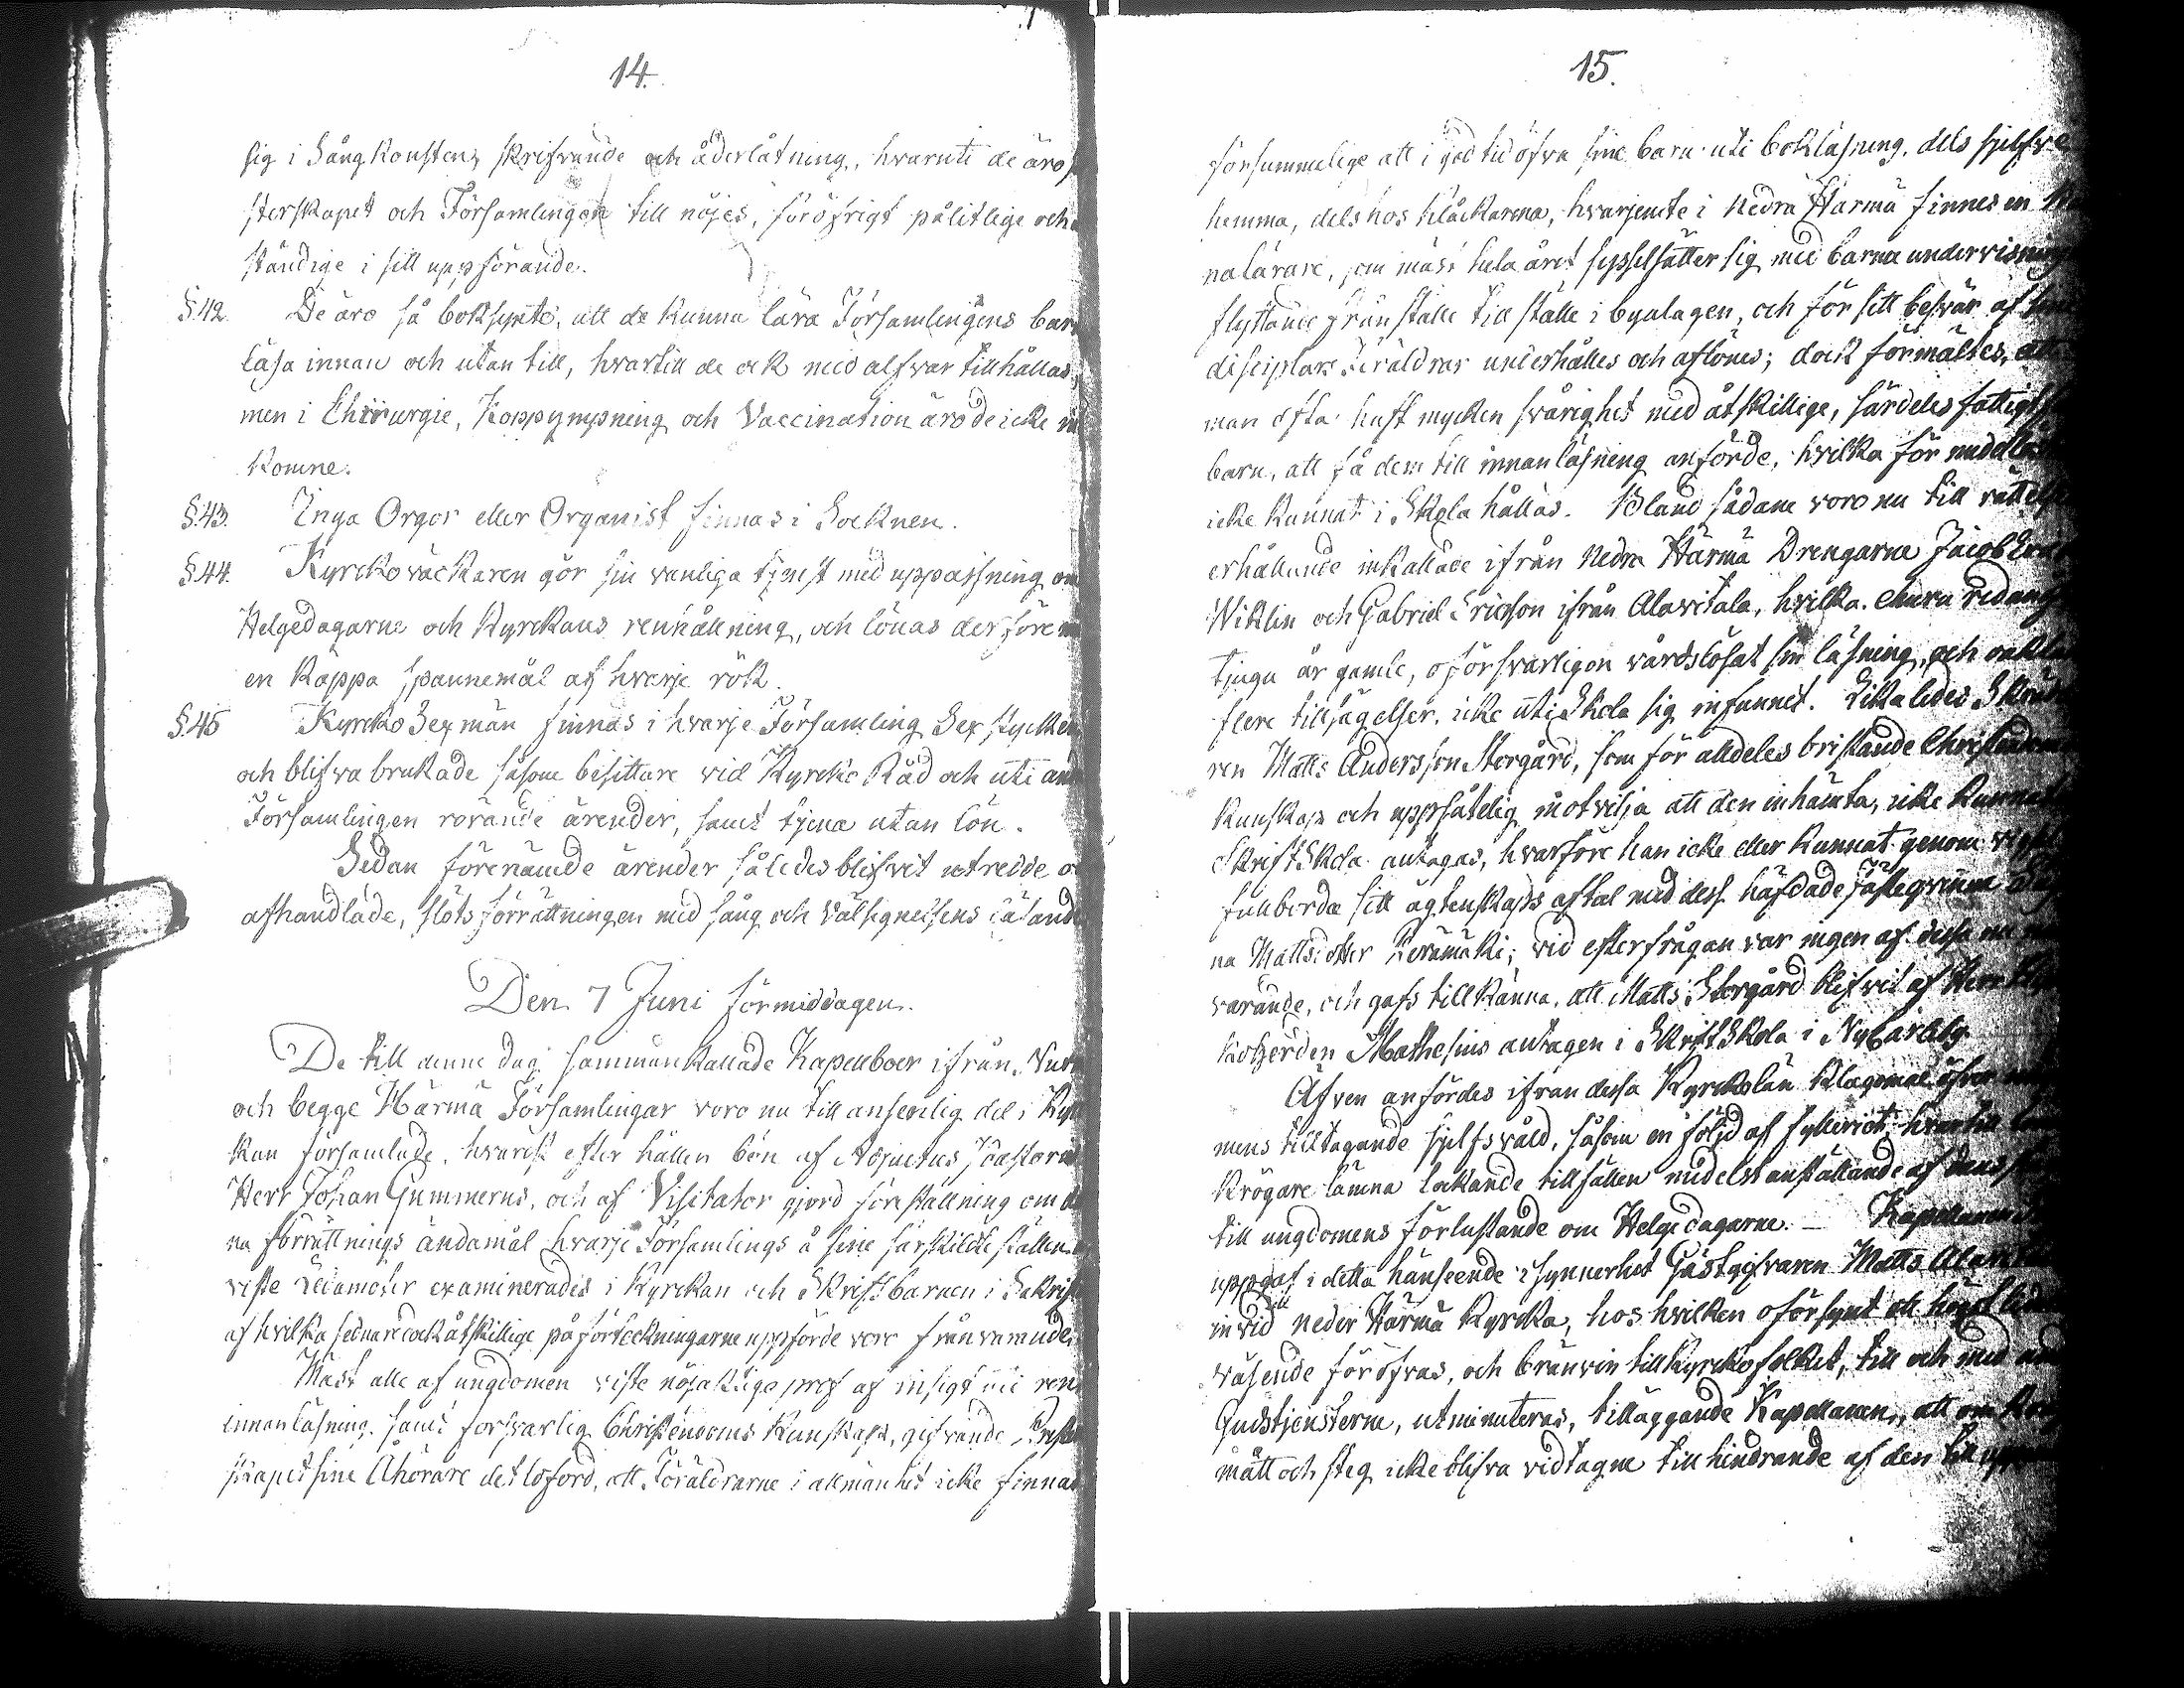 14.
sig i Sångkonsten, skrifvande och åderlåtning, hvaruti de äro
sterskapet och Församlingen till nöjes, föröfrigt pålitlige och
ständige i sitt uppförande.
§.42. De äro så boksynte, att de kunna lära Församlingens bar
läsa innan och utan till, hvartill de ock med alfvar tillhållas;
men i Chirurgie, Koppympning och Vaccination äro de icke in
komne.
§.43. Inga Orgor eller Organist finnas i Socknen.
§.44. Kyrckoväckaren gör sin vanliga tjenst med uppassning om
Helgedagarne och Kyrckans renhållning, och lönas derföre
en kappa spannemål af hvarje rök.
§.45 Kyrcko Sexmän finnas i hvarje Församling Sex stycken
och blifva brukade såsom bisittare vid Kyrcko Råd och uti an
Församlingen rörande ärender, samt tjena utan lön.
Sedan förenämde ärender således blifvit utredde o
afhandlade, slöts förrättningen med sång och Välsignelsens läsand
Den 7 Juni förmiddagen.
De till denne dag sammankallade Kapellboer ifrån
och begge Härmä Församlingar voro nu till ansenlig del i Kyr
kan församlade, hvarest efter hållen bön af Adjunctus Pastoral
Herr Johan Gummerus, och af Visitator gjord föreställning om de
na förrättnings ändamål hvarje Församlings å sine särskildte ställen
viste Ledamoter examinerades i Kyrckan och Skriftbarnen i Sakris
af hvilka sednare dock åtskillige på förteckningarne uppförde voro frånvarande.
Mäst alle af ungdomen viste nöjaktige prof af insigt uti ren
innanläsning, samt försvarlig Christendoms Kunskap, gifvande Prester
skapet sine Åhörare det loford, att Föräldrarne i allmänhet icke finnas
15.
försummelige att i god tid öfva sine barn uti bokläsning, dels sjelfve
hemma, dels hos klåckarena, hvarjemte i Nedra Härmä finnes en
nalärare, som mäst hela året sysselsätter sig med barna undervisning
flyttande från ställe till ställe i byalagen, och för sitt besvär af sine
disciplars Föräldrar underhålles och aflönes; dock förmältes, att
man ofta haft mycken svårighet med åtskillige, särdeles fattigt
barn, att få dem till innanläsning anförde, hvilka för medellös
icke kunnat i Skola hållas. Bland sådane voro nu till rättelse
erhållande inkallade ifrån Nedra Härmä Drengarne Jacob
Wiklin och Gabriel Ericsson ifrån Alavitala, hvilka, ehuru redan
tjugu år gamle, oförsvarligen vårdslösat sin läsning, och oaktadt
flere tillsägelser, icke uti Skola sig infunnit. Likaledes
ren Matts Andersson Storgård, som för alldeles bristande Christendoms
kunskap och uppsåtelig motvilja att den inhämta, icke kunnat
Skriftskola antagas, hvarföre han icke eller kunnat genom vigsel
fullborda sitt ägtenskaps aftal med dess häfdade fästeqvinna
na Mattsdotter Perämäki; vid efterfrågan var ingen af desse nu
varande, och gafs tillkänna, att Matts Storgård blifvit af Herr
koherden Mathesius antagen i Skriftskola i Nycarleby.
Äfven anfördes ifrån dessa Kyrckolän klagomål öfver
mens tilltagande sjelfsvåld, såsom en följd af fylleriet, hvartill
krögare lämna lockande tillfällen medelst anställande af dans
till ungdomens förlustande om Helgedagarne. — Kapellanen
uppgaf i detta hänseende i synnerhet Gästgifvaren Matts
invid neder Härmä Kyrcka, hos hvilken oförsynt ett högst
väsende föröfvas, och bränvin till Kyrckofolket, till och med
Gudstjensterne, utminuteras, tilläggande Kapellanen, att om
mått och steg icke blifva vidtagne till hindrande af den